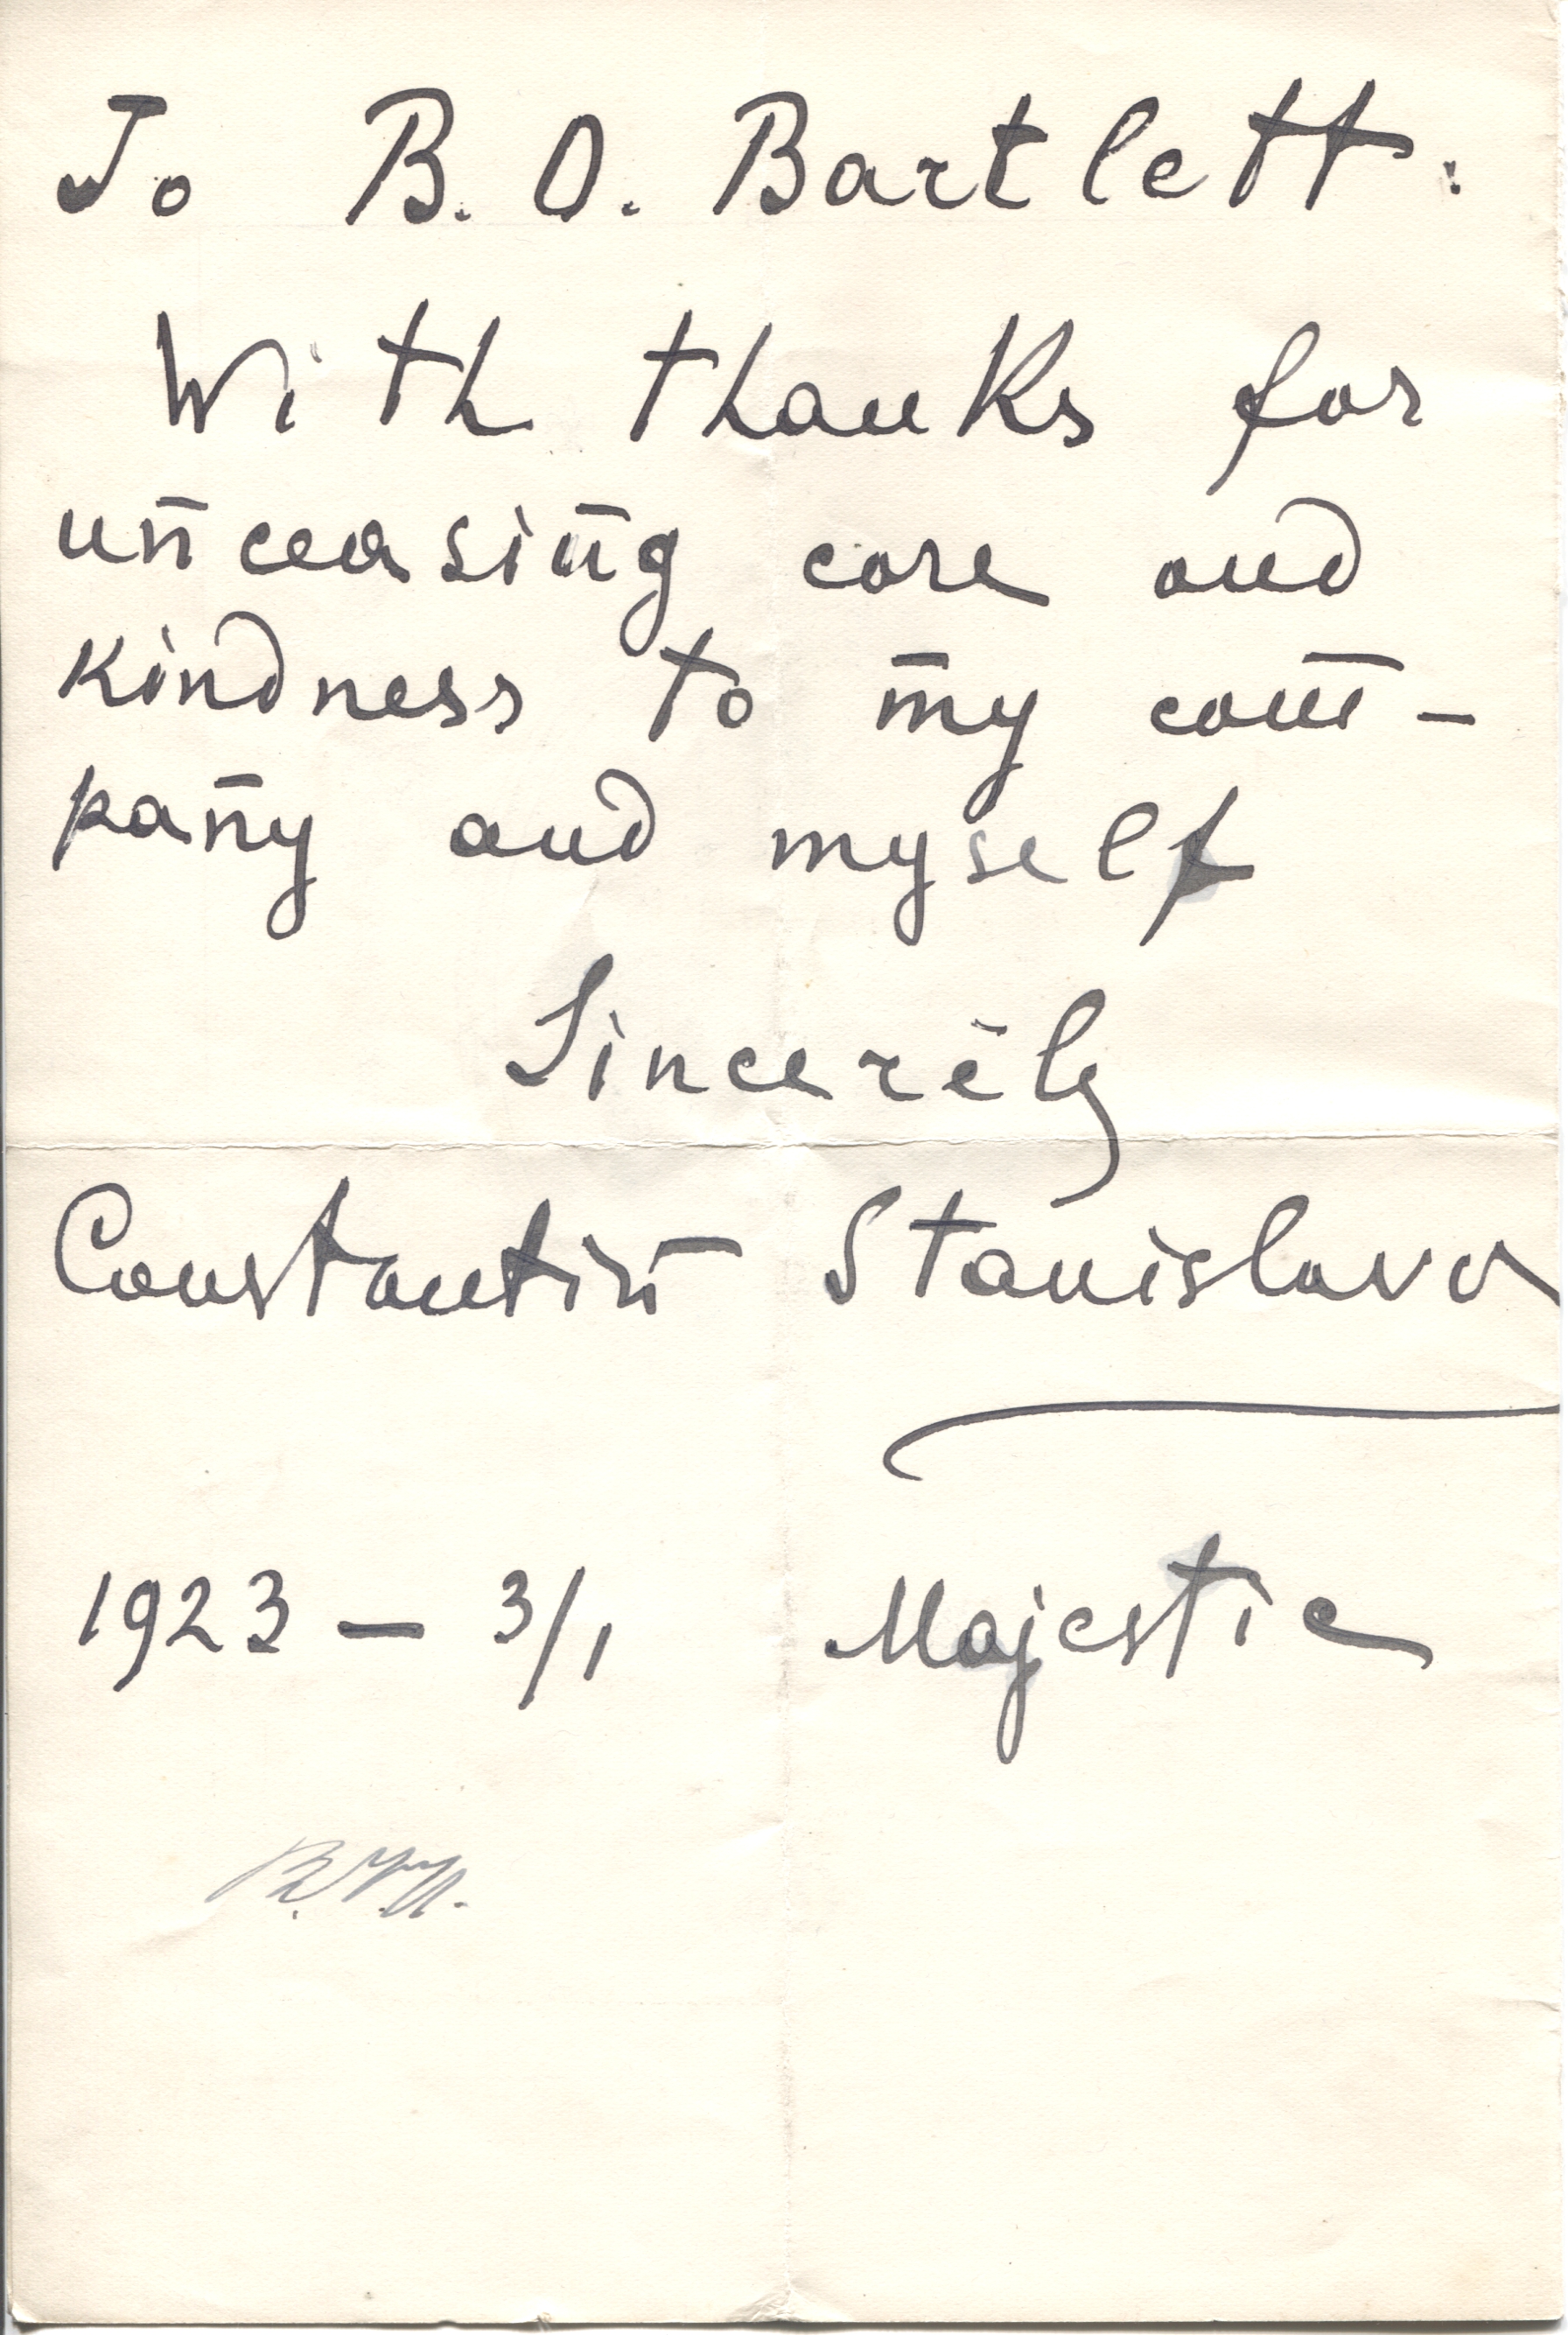 To B. O. Bartlett:
With thanks for
unceasing care and
kindness to my com-
pany and myself
Sincerely
Constantin Stanislavs
1923 — 3/1 Majestic